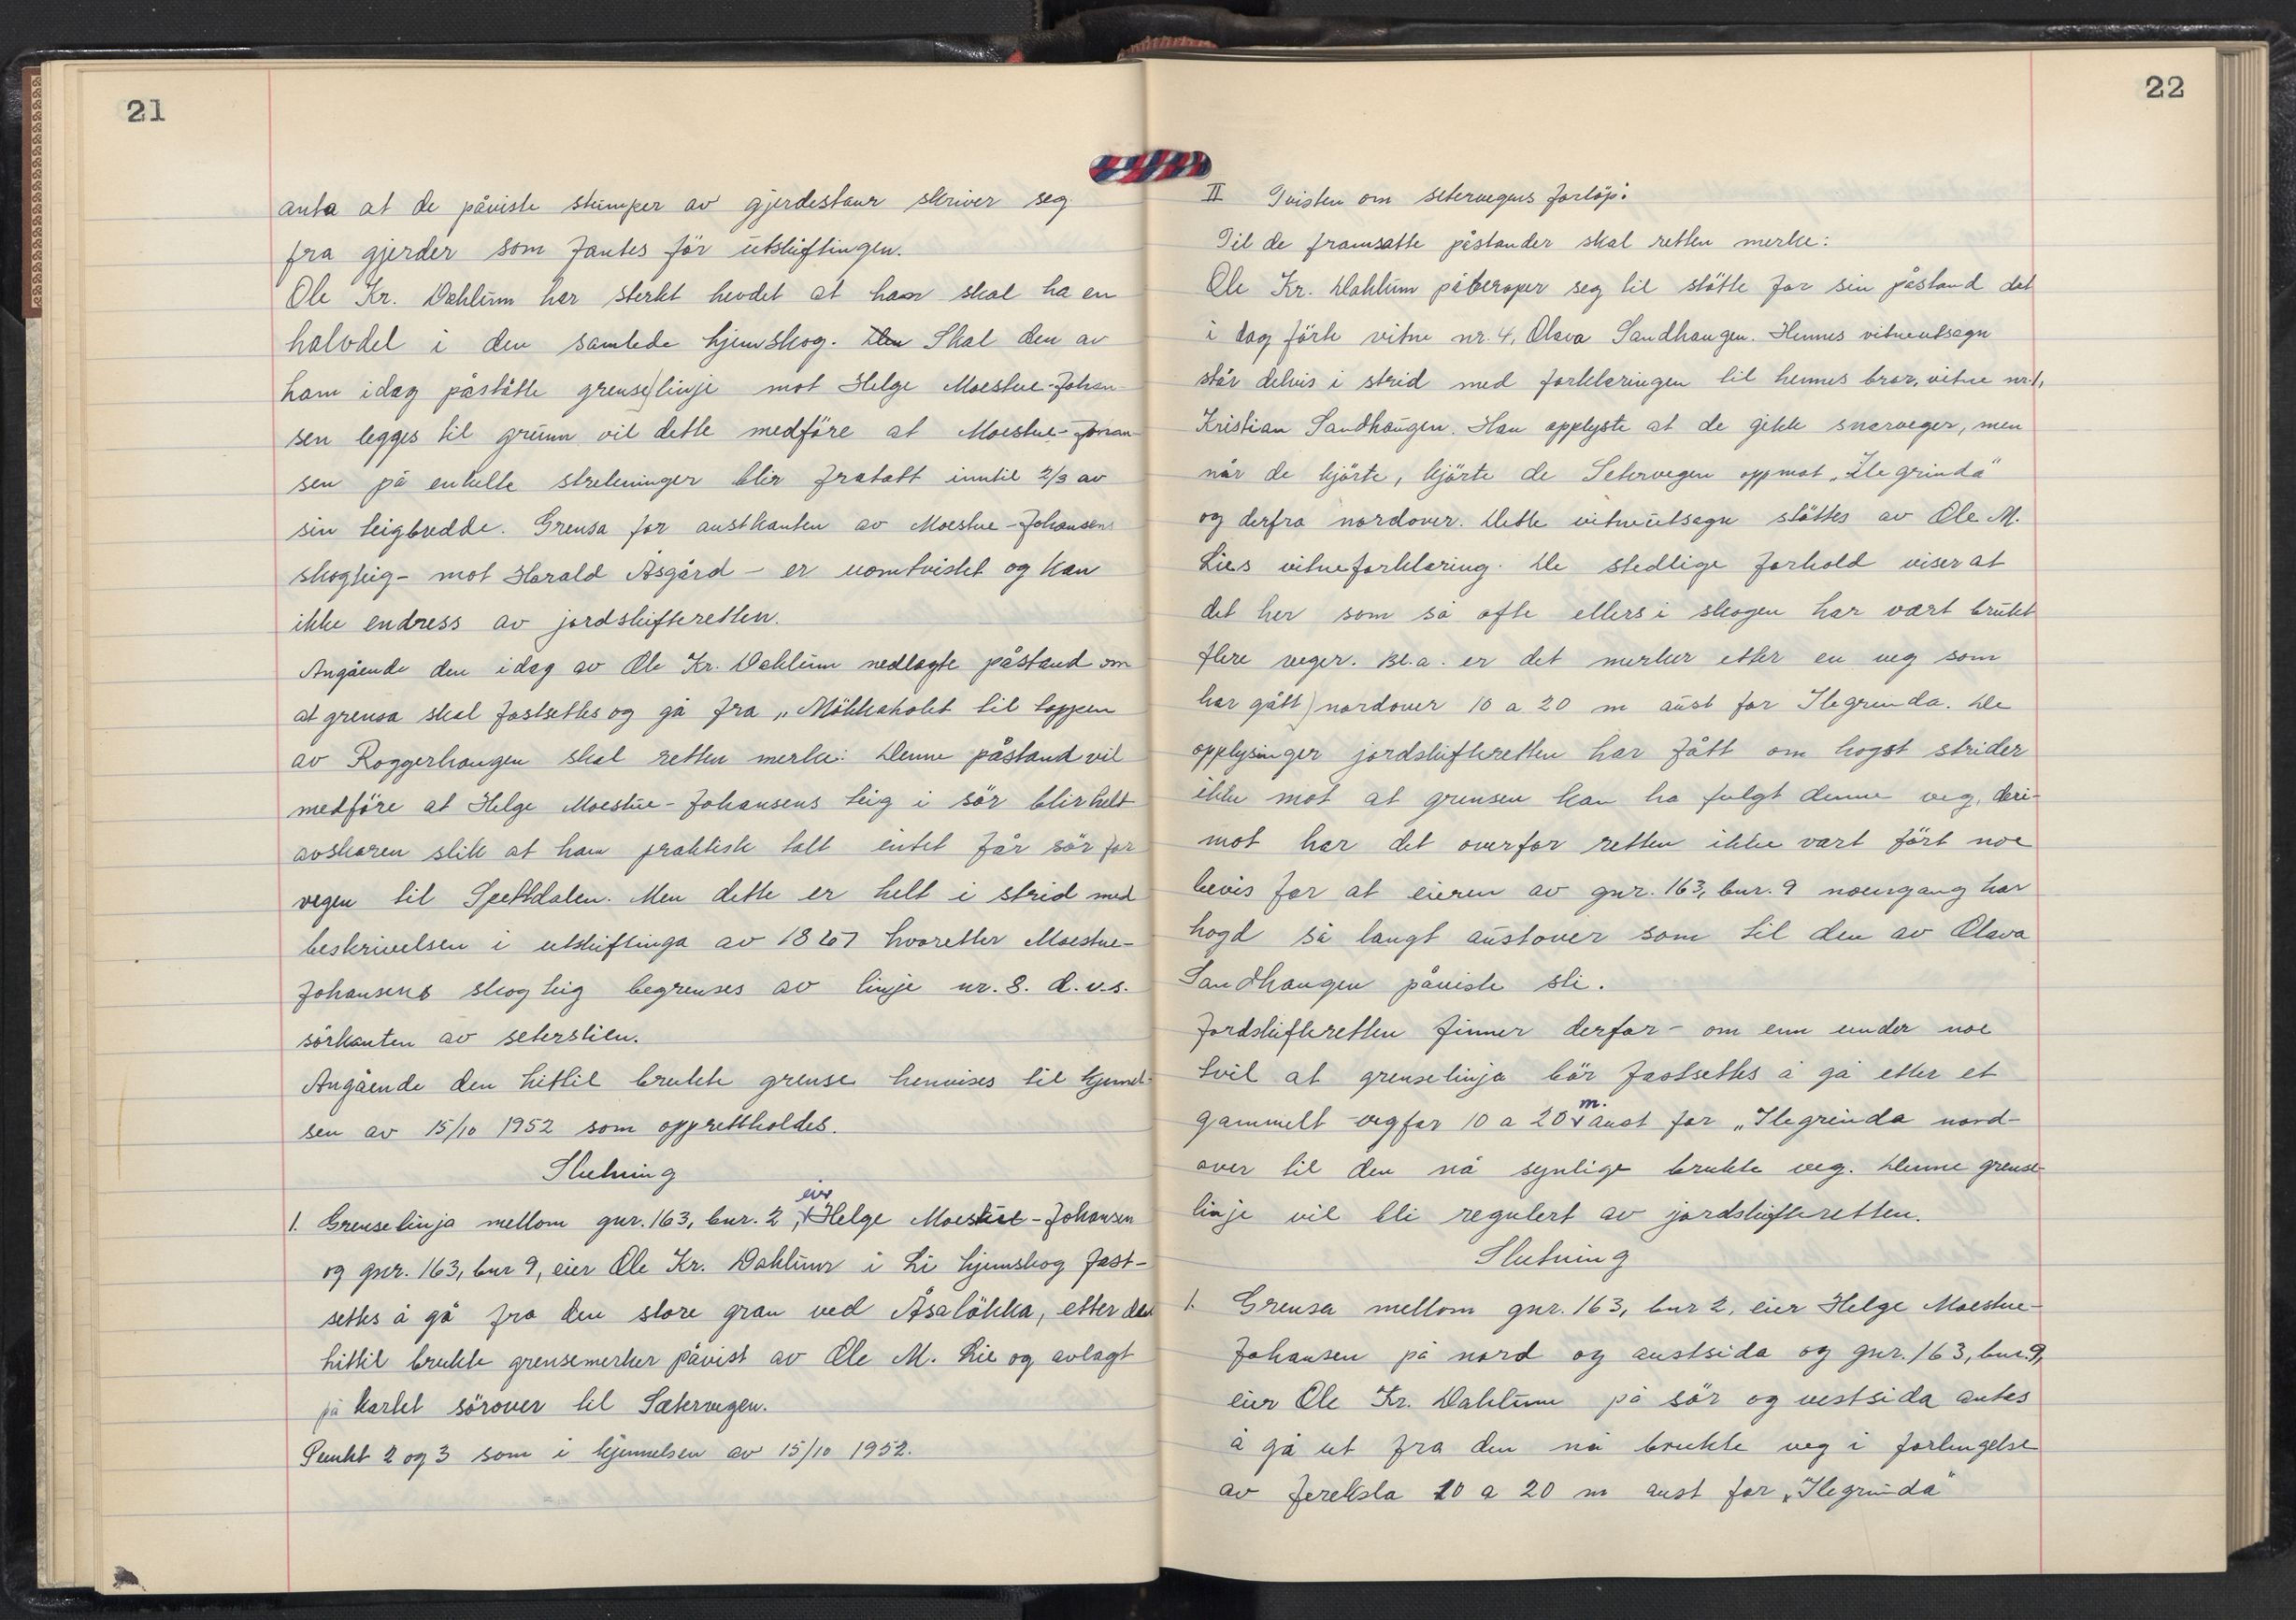 21
anta at de påviste stumper av gjerdestaur skriver seg
fra gjerder som fantes för utskiftingen.
Ole Kr. Dahlum har sterkt hevdet at han skal ha en
halvdel i den samlede hjemskog. Den Skal den av
ham idag påståtte grense)linje mot Helge Moestue-Johan-
sen legges til grunn vil dette medföre at Moestue-Johan-
sen på enkelte strekninger blir fratatt inntil 2/3 av
sin teigbredde. Grensa for austkanten av Moestue-Johansens
skogteig - mot Harald Åsgård - er uomtvistet og kan
ikke endress av jordskifteretten.
Angående den idag av Ole Kr. Dahlum nedlagte påstand om
at grensa skal fastsettes og gå fra „Mökkaholet til toppen
av Roggerhaugen skal retten merke: Denne påstand vil
medföre at Helge Moestue-Johansens teig i sör blir helt
avskaren slik at han praktisk talt intet får sör for
vegen til Spettdalen. Men dette er helt i strid med
beskrivelsen i utskiftinga av 1867 hvoretter Moestue-
Johansens skogteig begrenses av linje nr. 8. d.v.s.
sörkanten av seterstien.
Angående den hittil brukte grense henvises til kjennel-
sen av 15/10 1952 som opprettholdes.
Slutning
1. Grenselinja mellom gnr. 163, bnr. 2, eier Helge Moestue-Johansen
og gnr. 163, bnr 9, eier Ole Kr. Dahlum i Li hjemskog fast-
settes å gå fra den store gran ved Åsalökka, etter den
hittil brukte grensemerker påvist av Ole M. Lie og avlagt
på kartet sörover til Sætervegen.
Punkt 2 og 3 som i kjennelsen av 15/10 1952.
22
II Tvisten om setervegens forlöp:
Til de framsatte påstander skal retten merke:
Ole Kr. Dahlum påberoper seg til stötte for sin påstand det
i dag förte vitne nr. 4, Olava Sandhaugen. Hennes vitneutsagn
står delvis i strid med forklaringen til hennes bror, vitne nr. 1,
Kristian Sandhaugen. Han opplyste at de gikk snarveger, men
når de kjörte, kjörte de Setervegen oppmot „Ilegrinda"
og derfra nordover. Dette vitneutsagn stöttes av Ole M.
Lies vitneforklaring. De stedlige forhold viser at
det her som så ofte ellers i skogen har vært brukt
flere veger. Bl.a. er det merker etter en veg som
har gått) nordover 10 a 20 m aust for Ilegrinda. De
opplysinger jordskifteretten har fått om hogst strider
ikke mot at grensen kan ha fulgt denne veg, deri-
mot har det overfor retten ikke vært fört noe
bevis for at eieren av gnr. 163, bnr. 9 noengang har
hogd så langt austover som til den av Olava
Sandhaugen påviste sti.
Jordskifteretten finner derfor - om enn under noe
tvil at grenselinja bör fastsettes å gå etter et
gammelt vegfar 10 a 20 m. aust for „Ilegrinda nord-
over til den nå synlige brukte veg. Denne grense-
linje vil bli regulert av jordskifteretten.
Slutning
1. Grensa mellom gnr. 163, bnr 2, eier Helge Moestue-
Johansen på nord og austsida og gnr. 163, bnr. 9,
eier Ole Kr. Dahlum på sör og vestsida antas
å gå ut fra den nå brukte veg i forlengelse
av fereksla 10 a 20 m aust for „Ilegrinda"